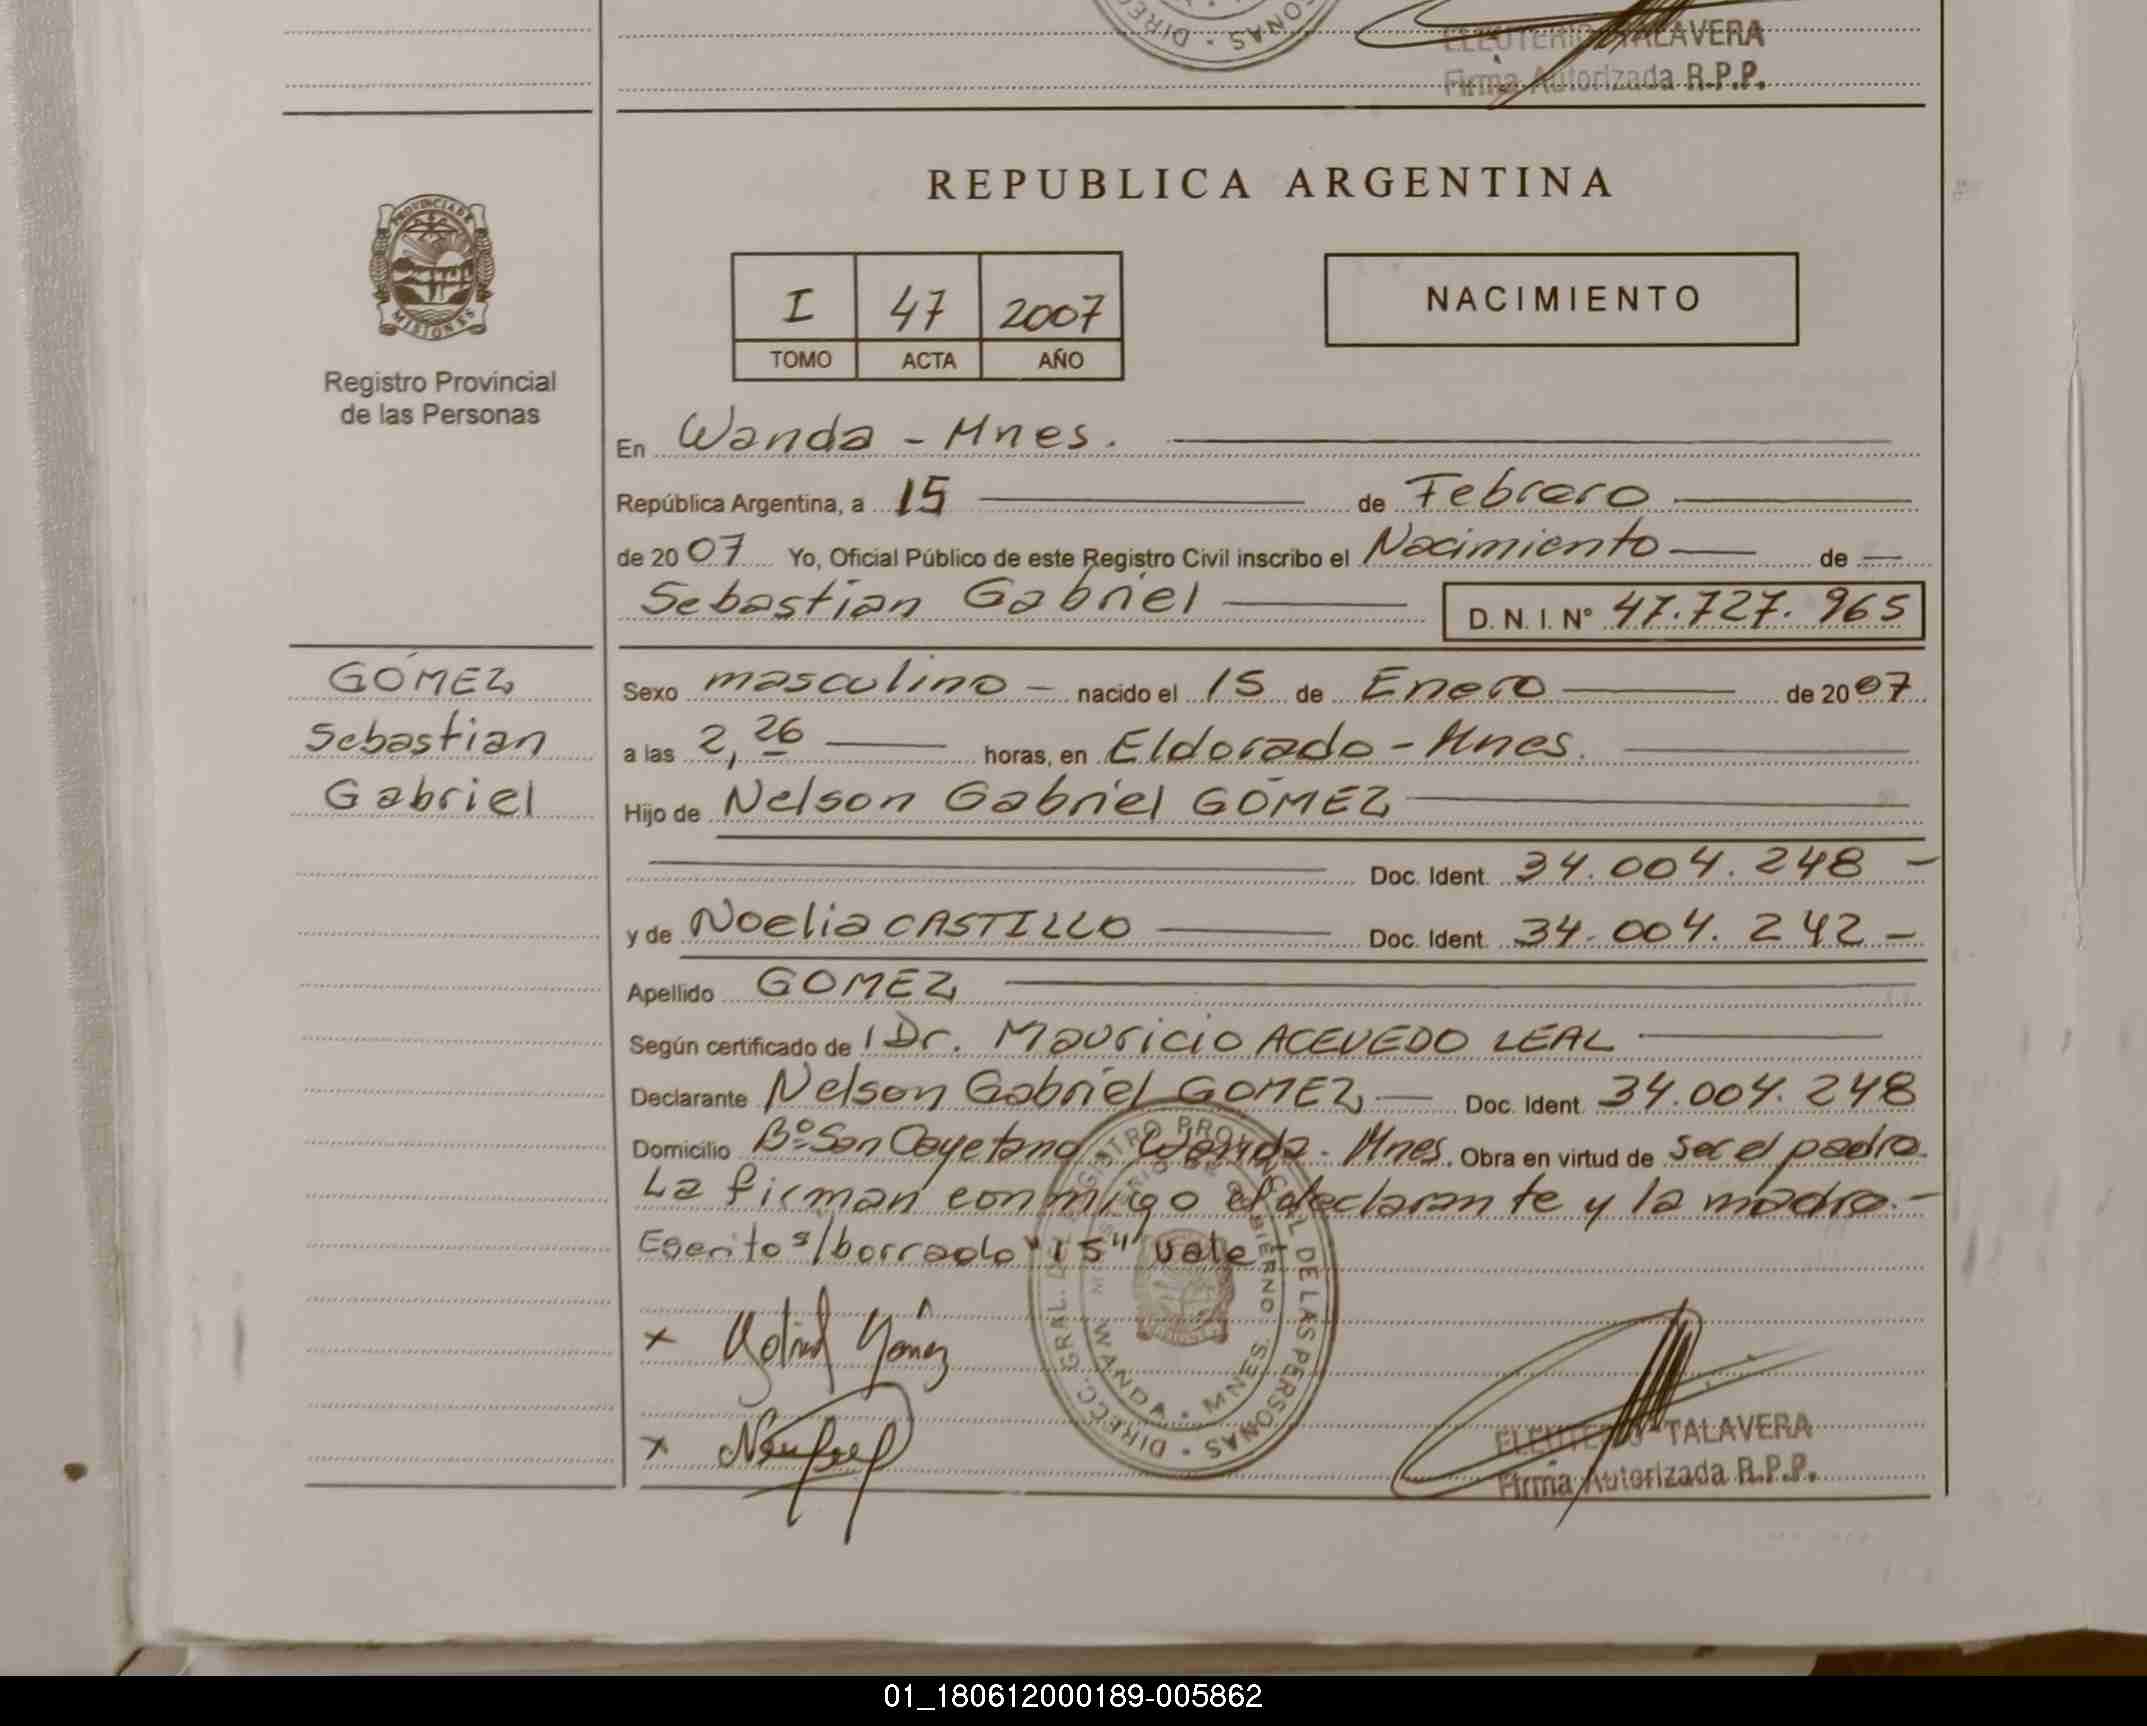 DIREC · SONAS ·
ELEUTERIO TALAVERA
Firma Autorizada R.P.P.
REPUBLICA ARGENTINA
PROVINCIA DE
MISIONES
Registro Provincial
de las Personas
I 47 2007
TOMO ACTA AÑO
NACIMIENTO
En Wanda - Mnes.
República Argentina, a 15 de Febrero
de 2007 Yo, Oficial Público de este Registro Civil inscribo el Nacimiento de
Sebastian Gabriel D. N. I. N° 47.727.965
GÓMEZ
Sebastian
Gabriel
Sexo masculino - nacido el 15 de Enero de 2007
a las 2,26 horas, en Eldorado - Mnes.
Hijo de Nelson Gabriel GÓMEZ
Doc. Ident. 34.004.248 -
y de Noelia CASTILLO Doc. Ident. 34.004.242 -
Apellido GOMEZ
Según certificado de / Dr. Mauricio ACEVEDO LEAL
Declarante Nelson Gabriel GOMEZ Doc. Ident. 34.004.248
Domicilio B° San Cayetano Wanda - Mnes. Obra en virtud de ser el padre.
La firman conmigo el declarante y la madre. -
Escrito s/borrado "15" vale
DIRECC. GRAL. DEL REGISTRO PROVINCIAL DE LAS PERSONAS ·
MINISTERIO DE GOBIERNO
WANDA · MNES.
x Gómez
x
ELEUTERIO TALAVERA
Firma Autorizada R.P.P.
01_180612000189-005862